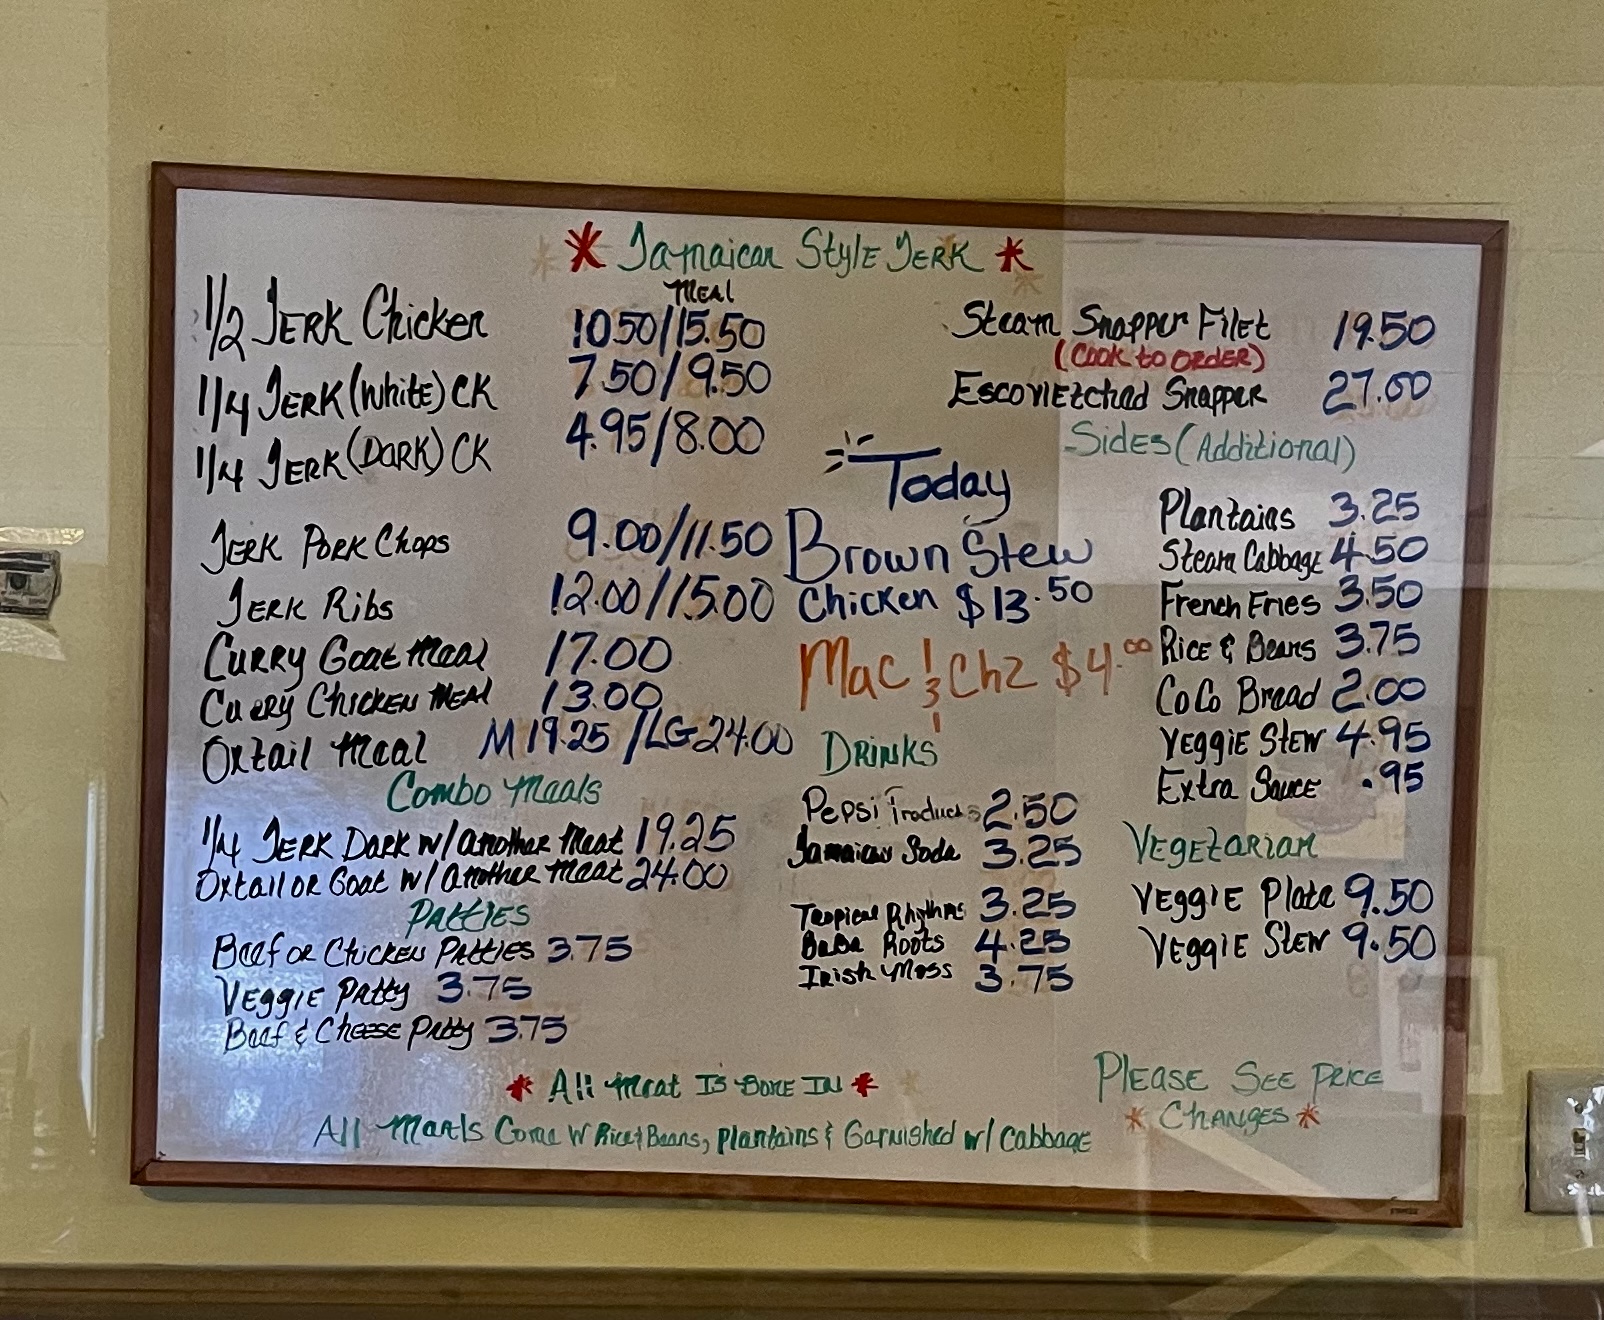 * Jamaican Style Jerk *
Meal
1/2 Jerk Chicken 10.50/15.50
1/4 Jerk (White) CK 7.50/9.50
1/4 Jerk (Dark) CK 4.95/8.00
Jerk Pork Chops 9.00/11.50
Jerk Ribs 12.00/15.00
Curry Goat Meal 17.00
Curry Chicken Meal 13.00
Oxtail Meal M 19.25 /LG 24.00
Combo Meals
1/4 Jerk Dark w/ another meat 19.25
Oxtail or Goat w/ another meat 24.00
Patties
Beef or Chicken Patties 3.75
Veggie Patty 3.75
Beef & Cheese Patty 3.75
Today
Brown Stew
Chicken $13.50
Mac & Chz $4.00
Drinks
Pepsi Products 2.50
Jamaican Soda 3.25
Tropical Rhythms 3.25
BaBa Roots 4.25
Irish Moss 3.75
Steam Snapper Filet 19.50
(Cook to order)
Escovietched Snapper 27.00
Sides (Additional)
Plantains 3.25
Steam Cabbage 4.50
French Fries 3.50
Rice & Beans 3.75
CoCo Bread 2.00
Veggie Stew 4.95
Extra Sauce .95
Vegetarian
Veggie Plate 9.50
Veggie Stew 9.50
* All Meat Is Bone In *
All Meals Come w Rice & Beans, Plantains & Garnished w/ Cabbage
Please See Price
* Changes *